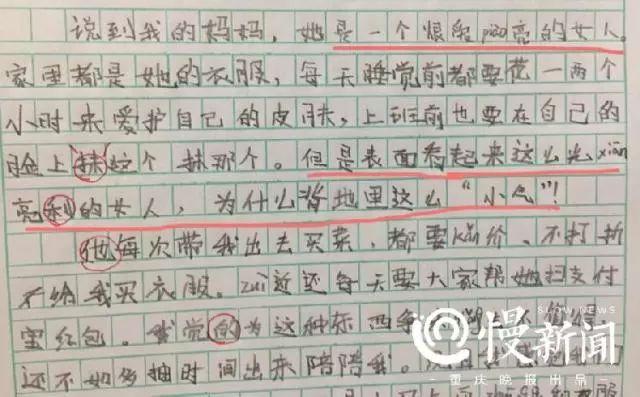 说到我的妈妈，她是一个很能piāo亮的女人。
家里都是她的衣服，每天睡觉前都要花一两个
小时来爱护自己的皮肤，上班前也要在自己的
脸上抹这个抹那个。但是表面看起来这么光xiān
亮利的女人，为什么背地里这么“小气”！
他每次带我出去买菜，都要kǎn价。不打折
不给我买衣服。zuì近还每天要大家帮她扫支付
宝红包。我觉的为这种东西
还不如多抽时间出来陪陪我。
慢新闻
SLOW NEWS
重庆晚报出品